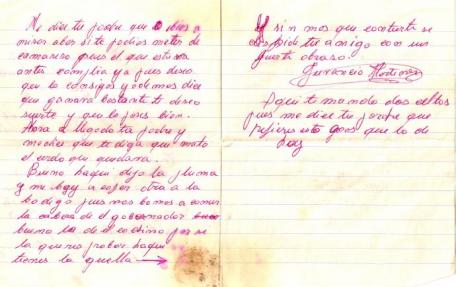 Me dice tu padre que
a ver si te podias meter de
camarero pues el que estava
antes cumplia ya pues deseo
que lo consigas y ademas dice
que ganara bastante te deseo
suerte y que lo pases bien.
Aora a llegado tu padre y
me dice que te diga que mato
el cerdo que quedava.
Bueno haqui dejo la pluma
y me boy a cojer otra a la
bodiga pues nos bamos a comer
la cabeza de el gobernador
bueno la de el cochino por se
la quieres probar haqui
tienes la guella →
Y sin mas que contarte se
despide tu amigo con un
fuerte abrazo.
Martinez
Aqui te mando dos celtos
pues me dice tu jorge que
prefieres esto que lo de